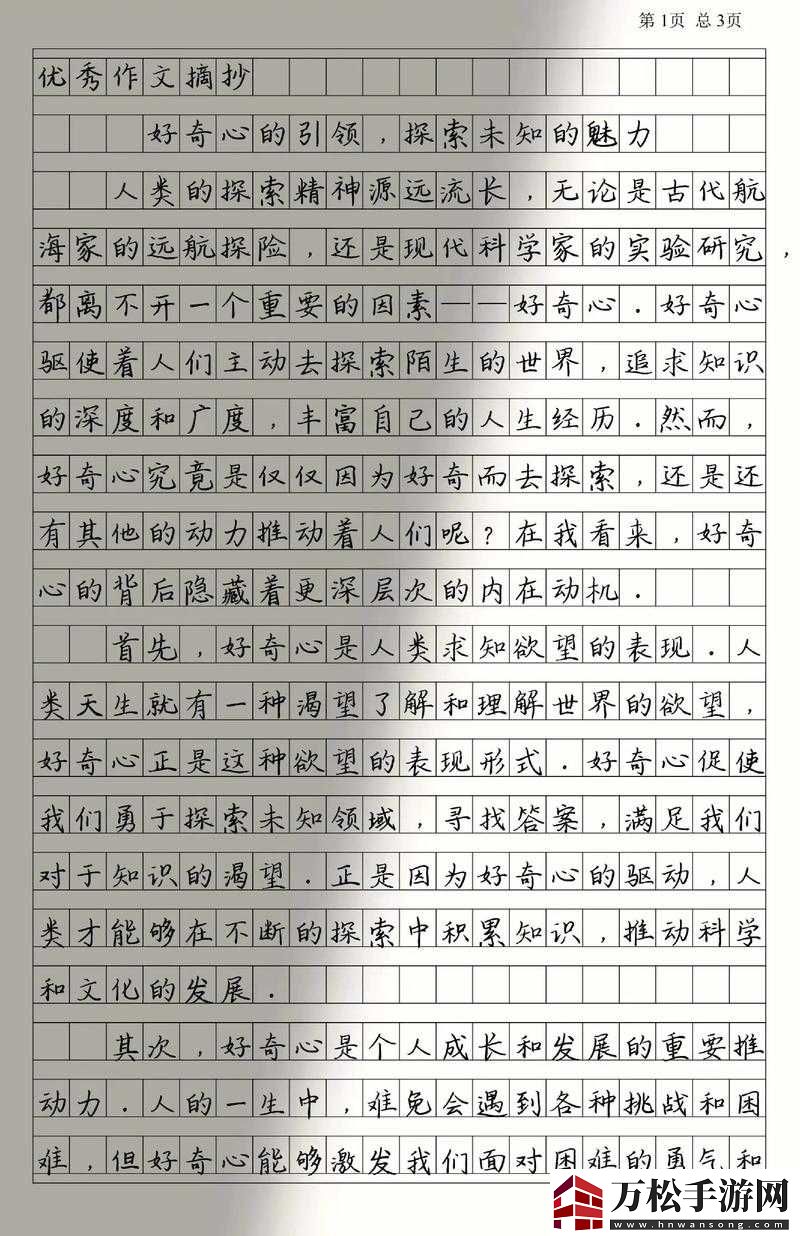 第1页 总3页
优秀作文摘抄
好奇心的引领，探索未知的魅力
人类的探索精神源远流长，无论是古代航
海家的远航探险，还是现代科学家的实验研究，
都离不开一个重要的因素——好奇心．好奇心
驱使着人们主动去探索陌生的世界，追求知识
的深度和广度，丰富自己的人生经历．然而，
好奇心究竟是仅仅因为好奇而去探索，还是还
有其他的动力推动着人们呢？在我看来，好奇
心的背后隐藏着更深层次的内在动机．
首先，好奇心是人类求知欲望的表现．人
类天生就有一种渴望了解和理解世界的欲望，
好奇心正是这种欲望的表现形式．好奇心促使
我们勇于探索未知领域，寻找答案，满足我们
对于知识的渴望．正是因为好奇心的驱动，人
类才能够在不断的探索中积累知识，推动科学
和文化的发展．
其次，好奇心是个人成长和发展的重要推
动力．人的一生中，难免会遇到各种挑战和困
难，但好奇心能够激发我们面对困难的勇气和
万松手游网
www.hnwansong.com